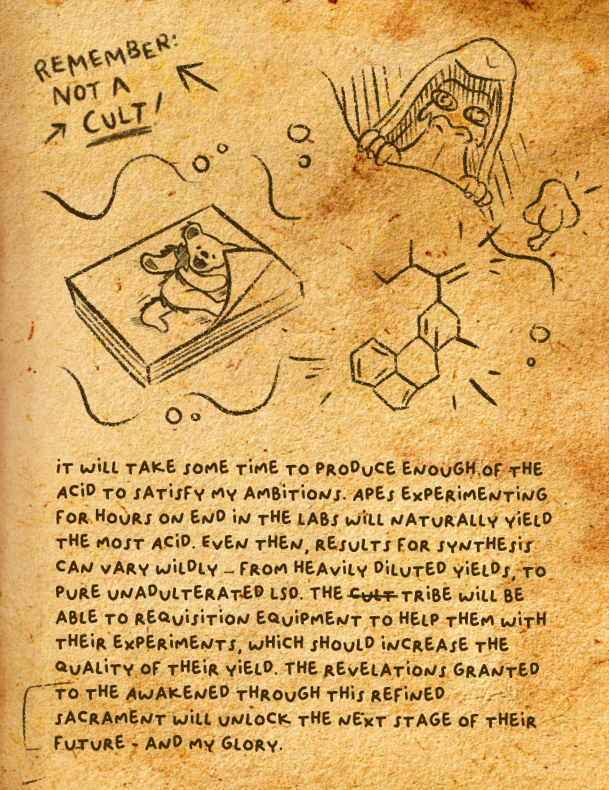 REMEMBER:
NOT A
CULT!
IT WILL TAKE SOME TIME TO PRODUCE ENOUGH OF THE
ACID TO SATISFY MY AMBITIONS. APES EXPERIMENTING
FOR HOURS ON END IN THE LABS WILL NATURALLY YIELD
THE MOST ACID. EVEN THEN, RESULTS FOR SYNTHESIS
CAN VARY WILDLY – FROM HEAVILY DILUTED YIELDS, TO
PURE UNADULTERATED LSD. THE CULT TRIBE WILL BE
ABLE TO REQUISITION EQUIPMENT TO HELP THEM WITH
THEIR EXPERIMENTS, WHICH SHOULD INCREASE THE
QUALITY OF THEIR YIELD. THE REVELATIONS GRANTED
TO THE AWAKENED THROUGH THIS REFINED
SACRAMENT WILL UNLOCK THE NEXT STAGE OF THEIR
FUTURE - AND MY GLORY.